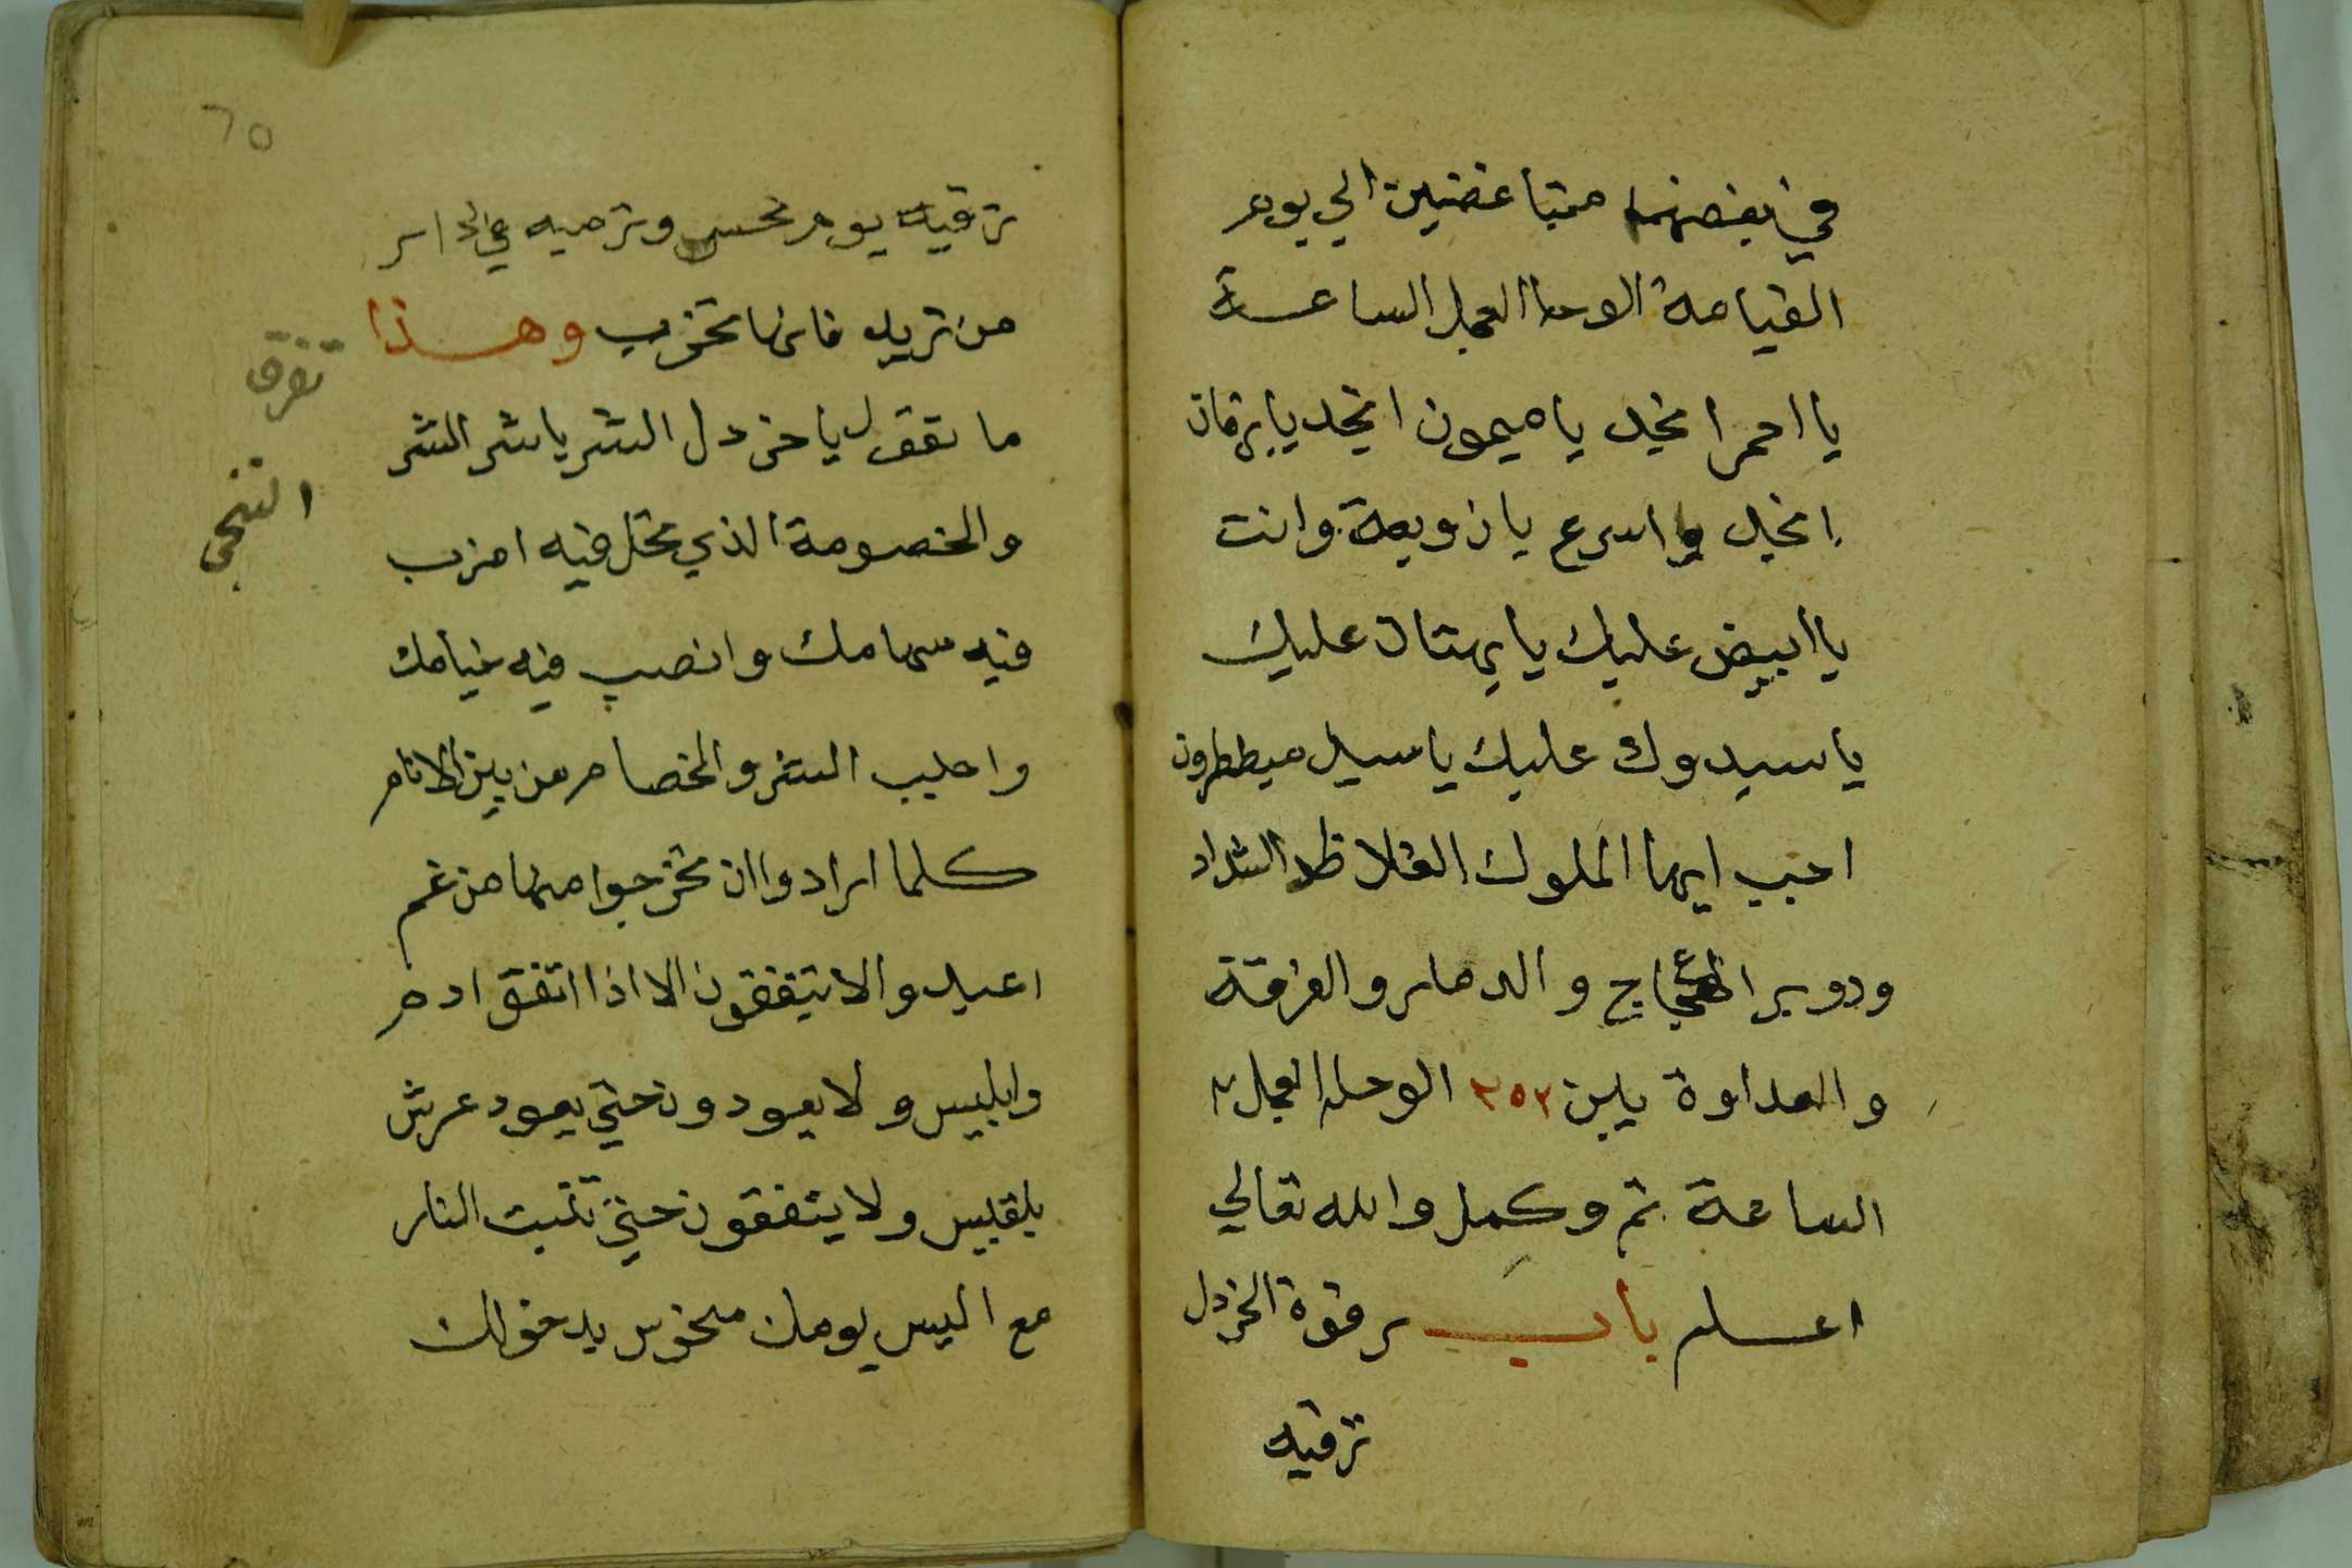 في بغضهما متباغضين الي يوم
القيامة الوحا العجل الساعة
يا احمر انجد يا ميمون انجد يا برقان
انجد واسرع يا زوبعة وانت
يا ابيض عليك يا يهتان عليك
ياسيدوك عليك ياسيد ميططرون
اجب ايها الملوك الغلاظ الشداد
ودوير العجاج والدمار والفرقة
والعداوة بين ٢٥٢ الوحا العجل ٢
الساعة تم وكمل والله تعالي
اعلم باب رقوة الخردل
ترقيه
٦٥
ترقيه يوم نحس وترميه في دار
من تريد فانها تخرب وهذا
ما تقول يا خردل الشر ياشر الشر
والخصومة الذي تحل فيه اضرب
فيه سهامك وانصب فيه خيامك
واجلب الشر والخصام من بين الانام
كلما ارادوا ان يخرجوا منها من غم
اعيدوا لا يتفقون الا اذا اتفق ادم
وابليس ولا يعودون حتي يعود عرش
بلقيس ولا يتفقون حتي تنبت النار
مع اليس يومك منحوس يدخولك
تفرق